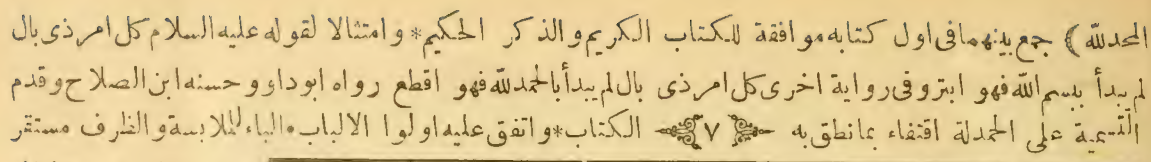 الحمدلله ﴾ جمع بينهما فى اول كتابه موافقة للكتاب الكريم والذكر الحكيم * وامتثالا لقوله عليه السلام كل امر ذى بال
لم يبدأ ببسم الله فهو ابتر وفى رواية اخرى كل امر ذى بال لم يبدأ بالحمدلله فهو اقطع رواه ابو داو و حسنه ابن الصلاح وقدم
التسمية على الحمدلة اقتفاء بما نطق به ٧ الكتاب * واتفق عليه اولوا الالباب * الباء للملابسة والظرف مستقر